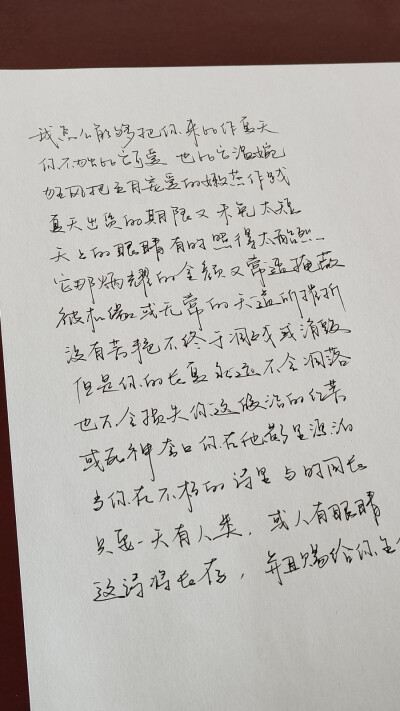 我怎么能够把你来比作夏天
你不独比它可爱 也比它温婉
狂风把五月宠爱的嫩蕊作践
夏天出赁的期限又未免太短
天上的眼睛有时照得太酷烈
它那炳耀的金颜又常遭掩蔽
被机缘或无常的天道所摧折
没有芳艳不终于凋残或消毁
但是你的长夏永远不会凋落
也不会损失你这皎洁的红芳
或死神夸口你在他影里漂泊
当你在不朽的诗里与时同长
只要一天有人类，或人有眼睛
这诗将长存，并且赐给你生